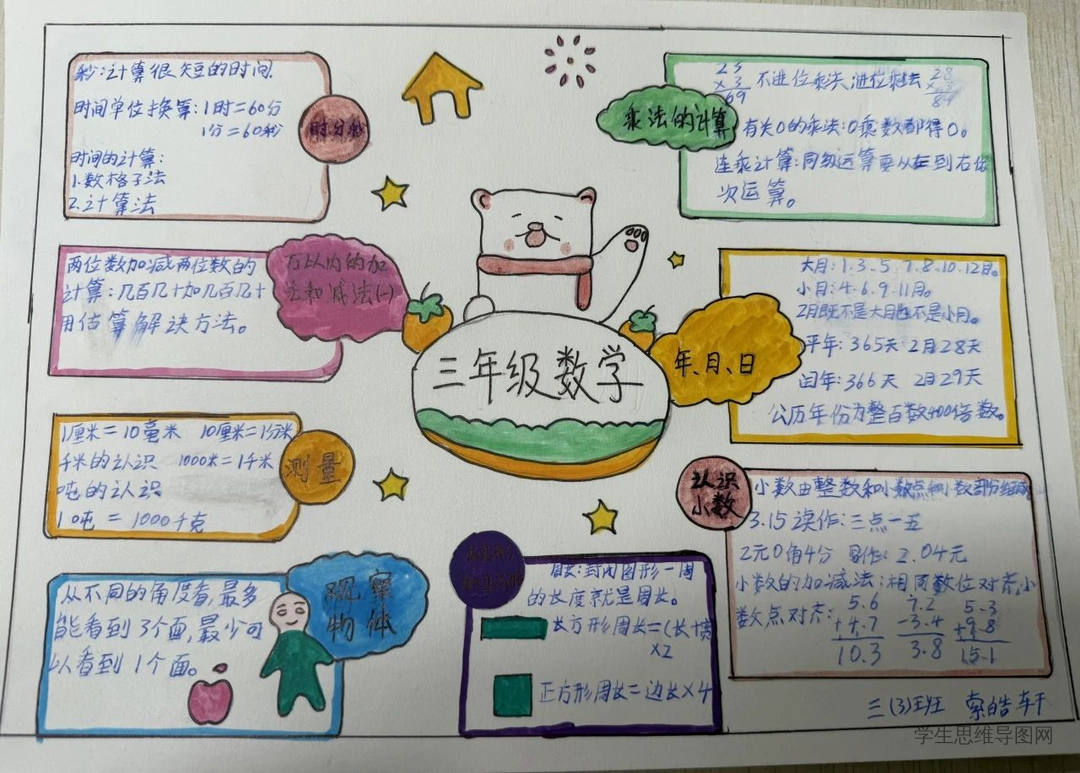 秒:计算很短的时间.
时间单位换算:1时=60分
1分=60秒
时间的计算:
1.数格子法
2.计算法
时分秒
两位数加减两位数的
计算:几百几十加几百几十
用估算解决方法。
万以内的加
法和减法(一)
1厘米=10毫米 10厘米=1分米
千米的认识 1000米=1千米
吨的认识
1吨=1000千克
测量
从不同的角度看,最多
能看到3个面,最少可
以看到1个面。
观察
物体
三年级数学
23
×3
69
不进位乘法,进位乘法
28
84
乘法的计算
有关0的乘法:0乘数都得0。
连乘计算:同级运算要从左到右依
次运算。
大月:1.3.5.7.8.10.12月。
小月:4.6.9.11月。
2月既不是大月也不是小月。
平年:365天 2月28天
闰年:366天 2月29天
公历年份为整百数400倍数。
年、月、日
认识
小数
小数由整数和小数点和小数部分组成
3.15读作:三点一五
2元0角4分 写作:2.04元
小数的加减法:相同数位对齐,小
数点对齐:
5.6
+4.7
10.3
7.2
-3.4
3.8
5.3
+9.8
15.1
周长:封闭图形一周
的长度就是周长。
长方形周长=(长+宽)
×2
正方形周长=边长×4
三(3)班 索皓轩
学生思维导图网